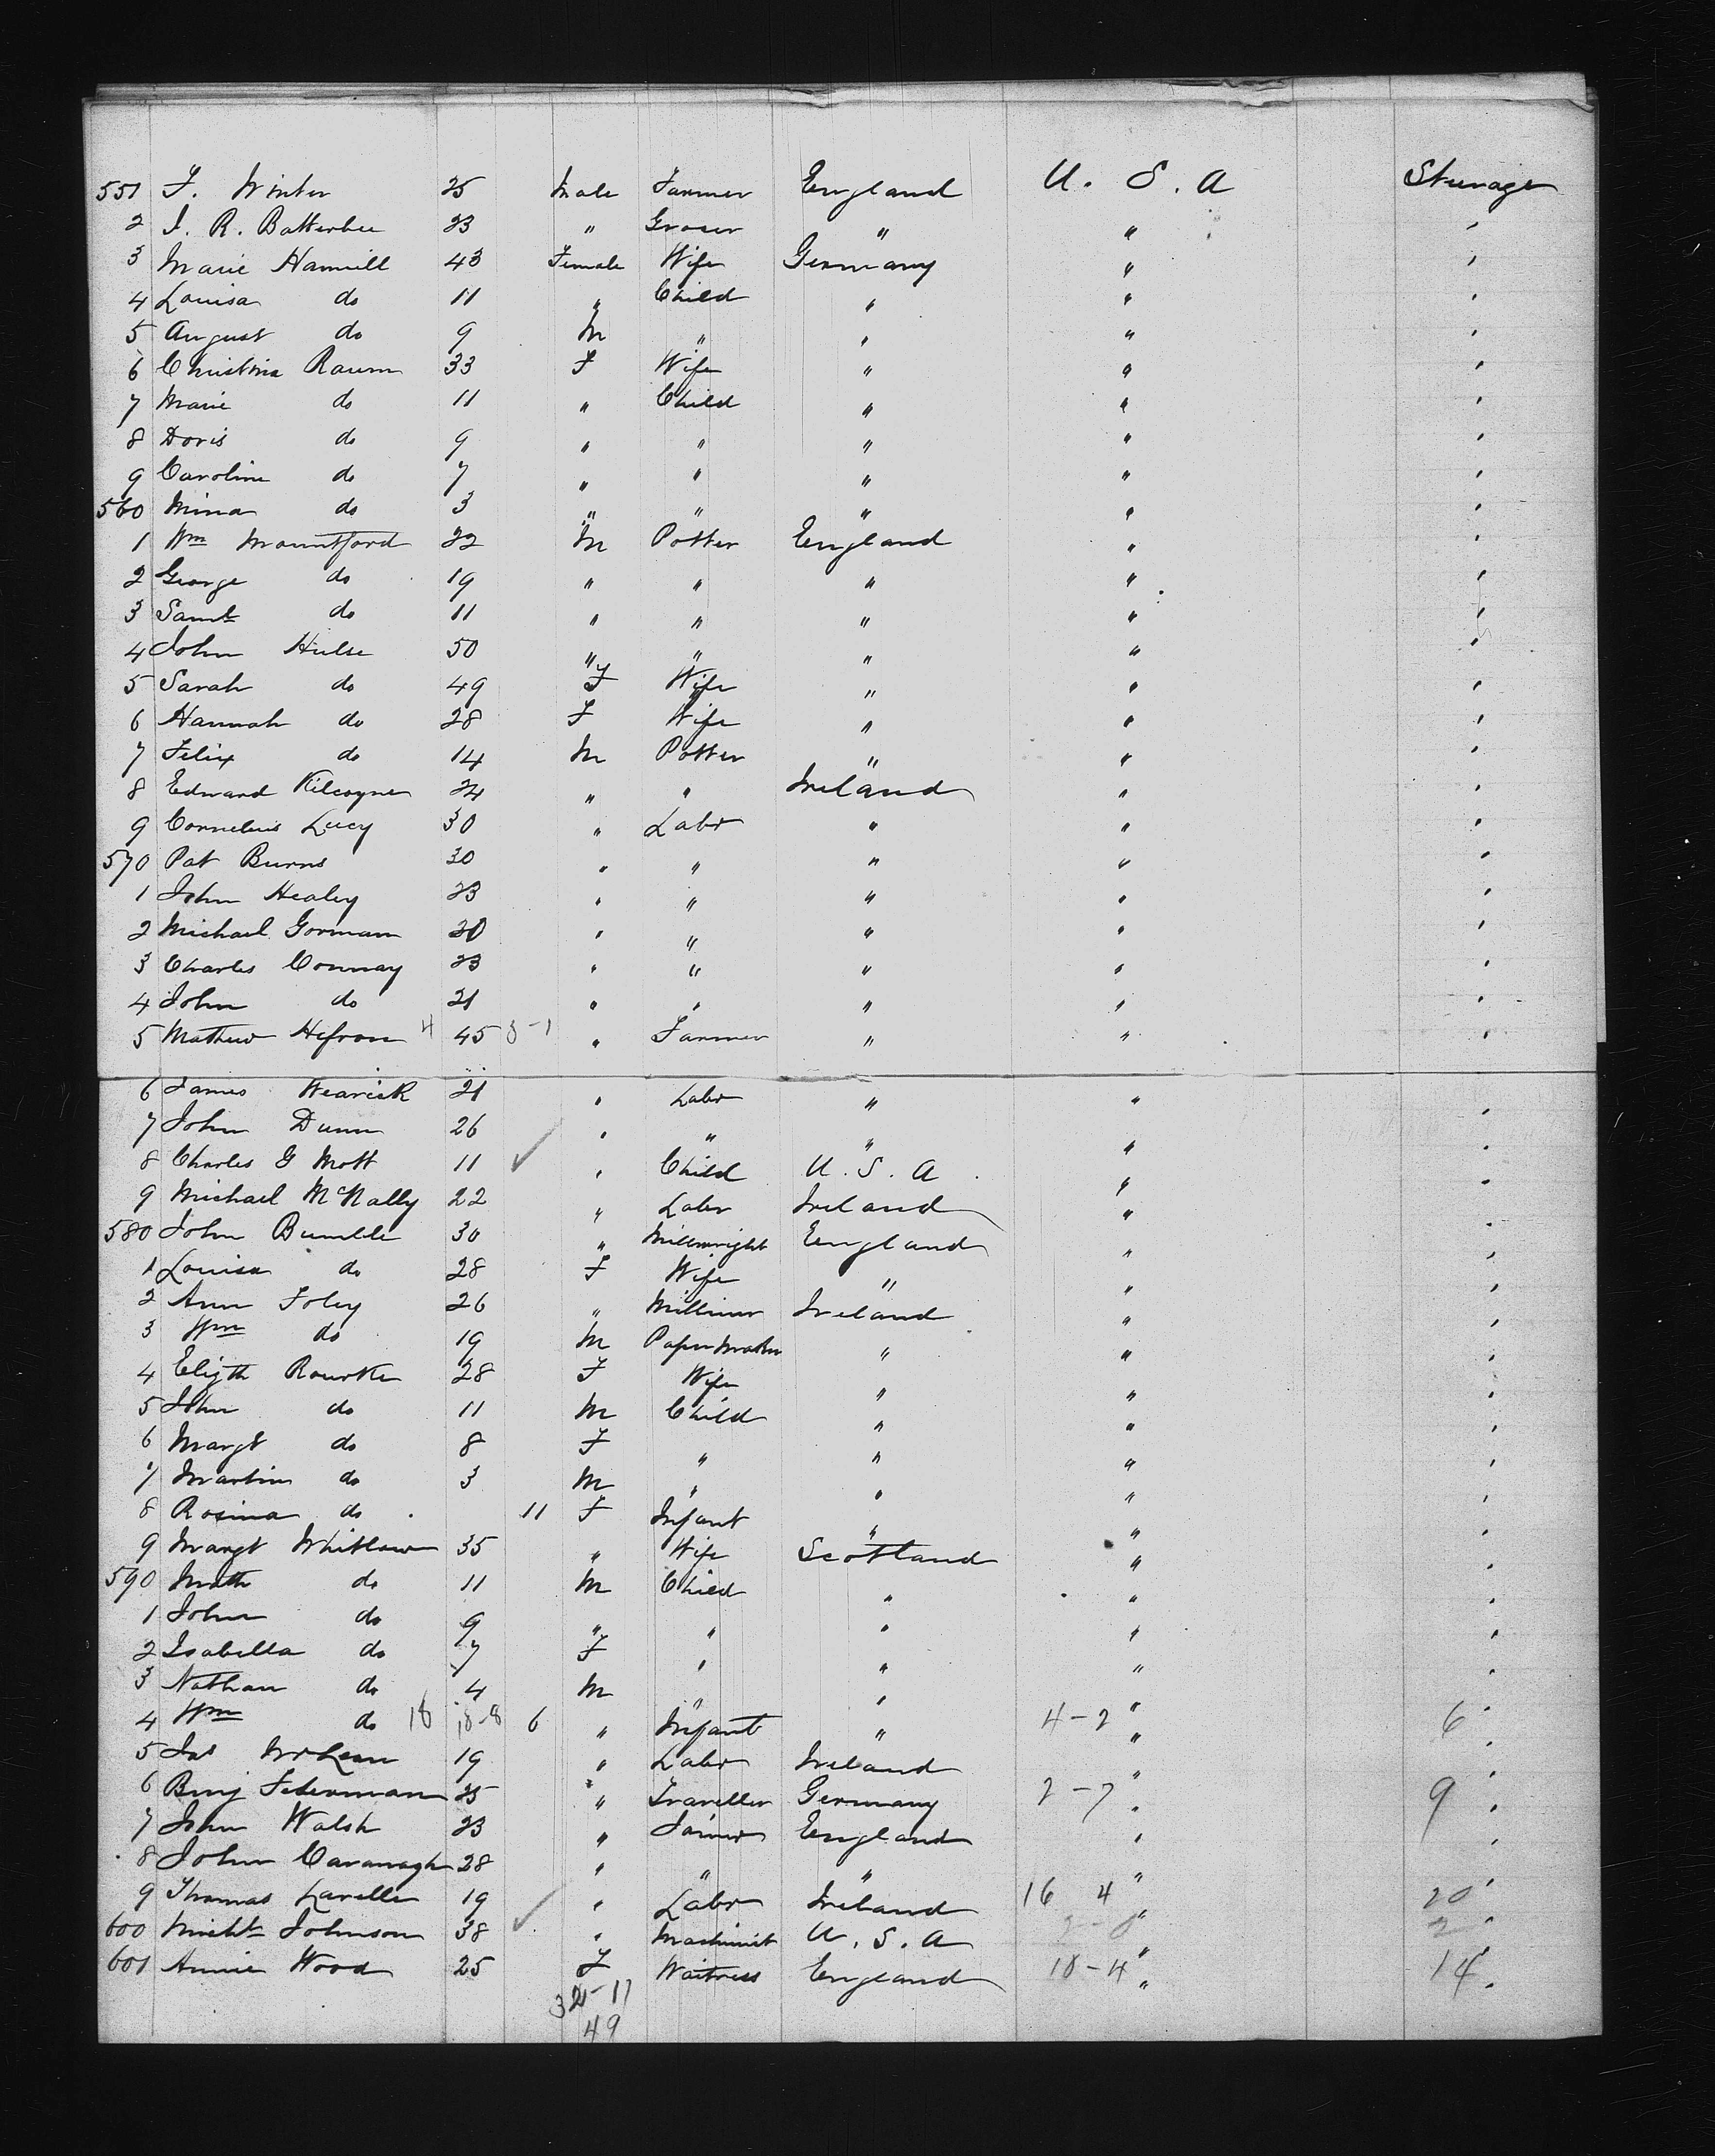 551 F. Winter 25 Male Farmer England U. S. A Steerage
2 J. R. Batterbee 23 " Grocer " " "
3 Marie Hamill 43 Female Wife Germany " "
4 Louisa do 11 " Child " " "
5 August do 9 M " " " "
6 Christina Raum 33 F Wife " " "
7 Marie do 11 " Child " " "
8 Doris do 9 " " " " "
9 Caroline do 7 " " " " "
560 Mina do 3 " " " " "
1 Wm Mountford 22 M Potter England " "
2 George do 19 " " " " "
3 Saml do 11 " " " " "
4 John Hulse 50 " " " " "
5 Sarah do 49 F Wife " " "
6 Hannah do 28 F Wife " " "
7 Felix do 14 M Potter " " "
8 Edward Kilcoyne 24 " " Ireland " "
9 Cornelius Lucy 30 " Labr " " "
570 Pat Burns 30 " " " " "
1 John Healey 23 " " " " "
2 Michael Gorman 20 " " " " "
3 Charles Conway 23 " " " " "
4 John do 21 " " " " "
5 Mathew Hefron 4 45 " Farmer " " "
6 James Wearick 21 " Labr " " "
7 John Dunn 26 " " " " "
8 Charles G Mott 11 ✓ " Child U. S. A " "
9 Michael McNally 22 " Labr Ireland " "
580 John Bumble 30 " Millwright England " "
1 Louisa do 28 F Wife " " "
2 Ann Foley 26 " Milliner Ireland " "
3 Wm do 19 M Paper Maker " " "
4 Elizth Rourke 28 F Wife " " "
5 John do 11 M Child " " "
6 Margt do 8 F " " " "
7 Martin do 3 M " " " "
8 Rosina do 11 F Infant " " "
9 Margt Whitlaw 35 " Wife Scotland " "
590 Math do 11 M Child " " "
1 John do 9 " " " " "
2 Isabella do 7 F " " " "
3 Nathan do 4 M " " " "
4 Wm do 18 18-8 6 " Infant " 4-2 " 6 "
5 Jas McLean 19 " Labr Ireland " "
6 Benj Federman 25 " Traveller Germany 2-7 " 9 "
7 John Walsh 23 " Farmer England " "
8 John Cavanagh 28 " " " " "
9 Thomas Lavelle 19 " Labr Ireland 16 4 " 20 "
600 Michl Johnson 38 ✓ " Machinist U. S. A " 2 "
601 Annie Wood 25 F Waitress England 18-4 " 14 "
32-17
49